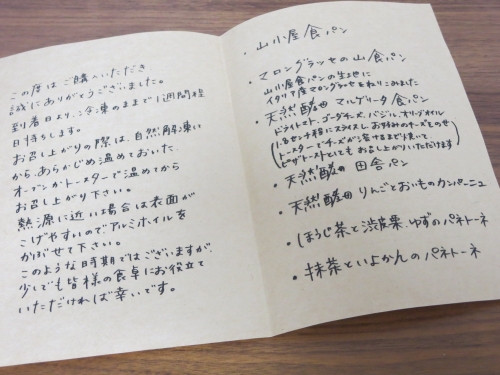 この度はご購入いただき
誠にありがとうございました。
到着日より、冷凍のままで1週間程
日持ちします。
お召し上がりの際は、自然解凍して
から、あらかじめ温めておいた
オーブンかトースターで温めてから
お召し上がり下さい。
熱源に近い場合は表面が
こげやすいのでアルミホイルを
かぶせて下さい。
このような時期ではございますが
少しでも皆様の食卓にお役立て
いただければ幸いです。
・山小屋食パン
・マロングラッセの山食パン
山小屋食パンの生地に
イタリア産マロングラッセをねりこみました
・天然酵母 マルゲリータ食パン
ドライトマト、ゴーダチーズ、バジル、オリーブオイル
(1.8センチ程にスライスし お好みのチーズをのせ
トースターでチーズが溶けるまで焼いて
ピザトーストとしてもお召し上がりいただけます)
・天然酵母 田舎パン
・天然酵母 りんごとおいものカンパーニュ
・ほうじ茶と渋皮栗、ゆずのパネトーネ
・抹茶といよかんのパネトーネ